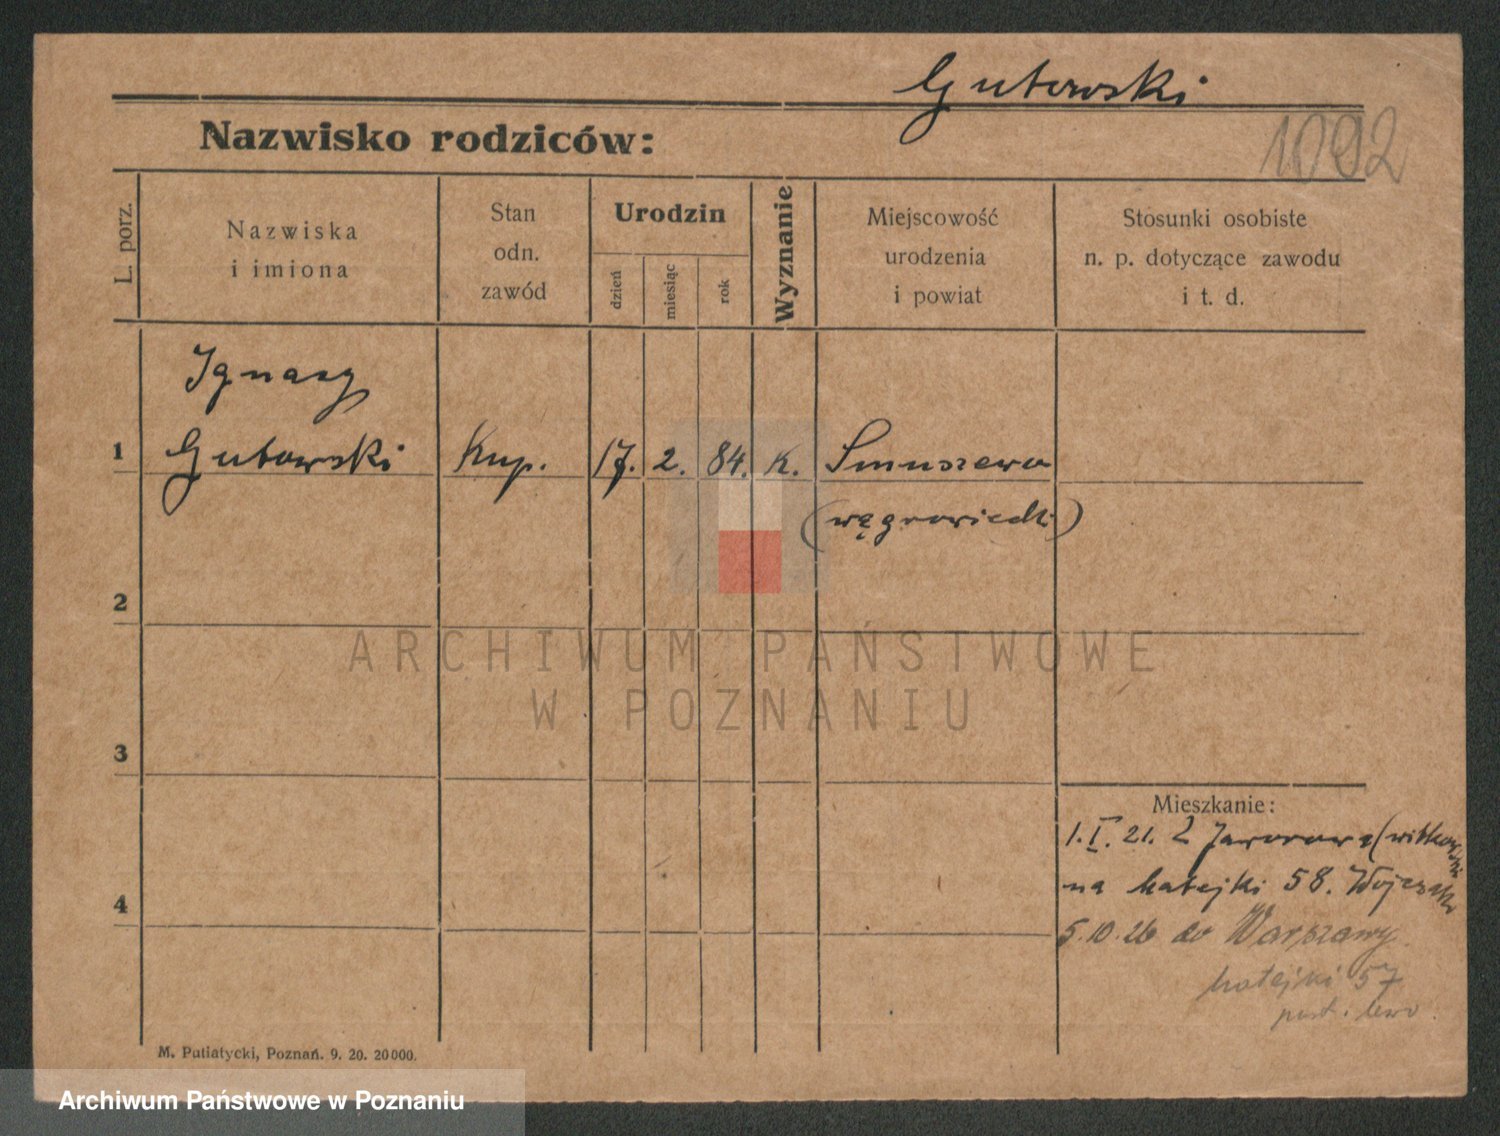 Gutowski
Nazwisko rodziców:
1092
L. porz.
Nazwiska
i imiona
Stan
odn.
zawód
Urodzin
dzień
miesiąc
rok
Wyznanie
Miejscowość
urodzenia
i powiat
Stosunki osobiste
n. p. dotyczące zawodu
i t. d.
Ignacy
1 Gutowski Kup. 17. 2. 84. K. Smuszewo
(wągrowiecki)
2
ARCHIWUM PAŃSTWOWE
W POZNANIU
3
Mieszkanie:
1. I. 21. Z Jaworowa (witkowski
na Matejki 58. Wojczak
4
5.10.26 do Warszawy
Matejki 57
M. Putiatycki, Poznań. 9. 20. 20000.
Archiwum Państwowe w Poznaniu